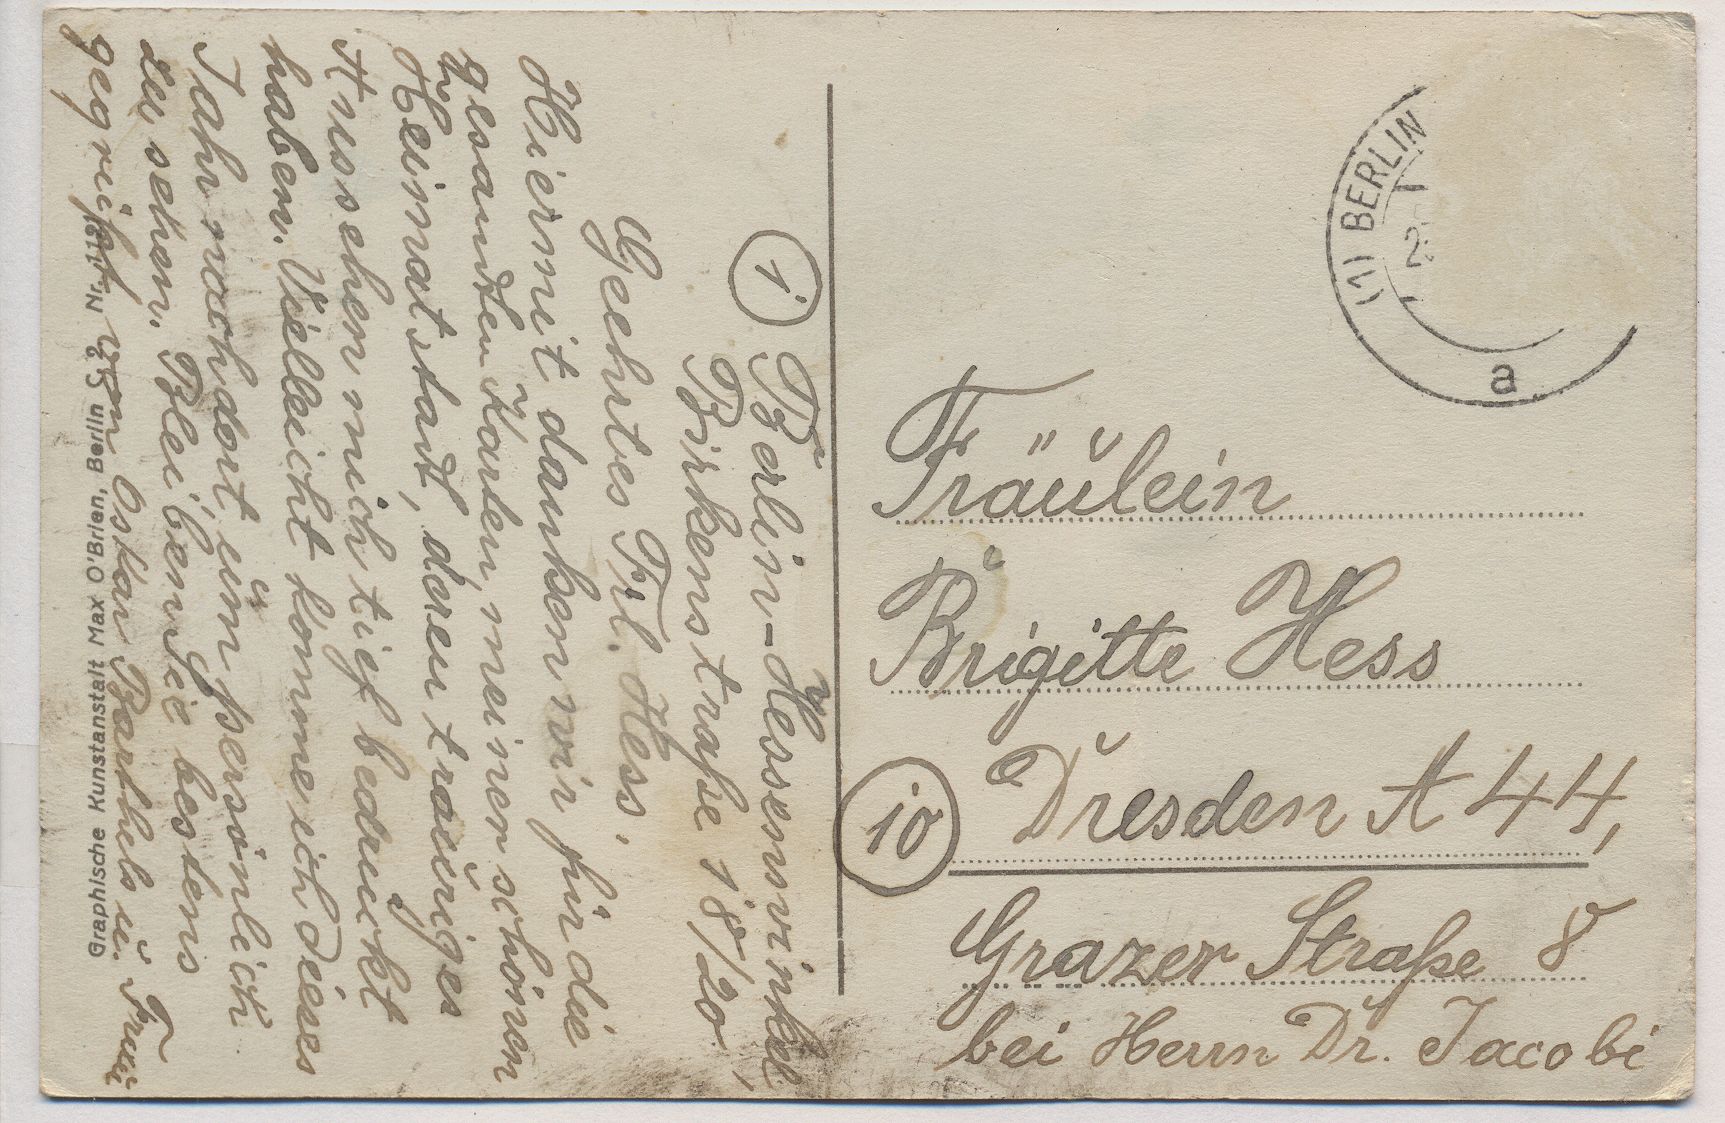 ① Berlin-Hessenwinkel,
Birkenstraße 18/20
Geehrtes Frl. Hess,
Hiermit danken wir für die
gesandten Karten, meiner schönen
Heimatstadt, deren trauriges
Aussehen mich tief bedruckt
haben. Vielleicht komme ich dieses
Jahr nach dort, um persönlich
zu sehen. Bleiben Sie bestens
gegrüßt von Oskar Barthels u. Frau
Graphische Kunstanstalt Max O'Brien, Berlin C 2 Nr. 112
(1) BERLIN
2
a
Fräulein
Brigitte Hess
⑩ Dresden A 44,
Grazer Straße 8
bei Herrn Dr. Jacobi